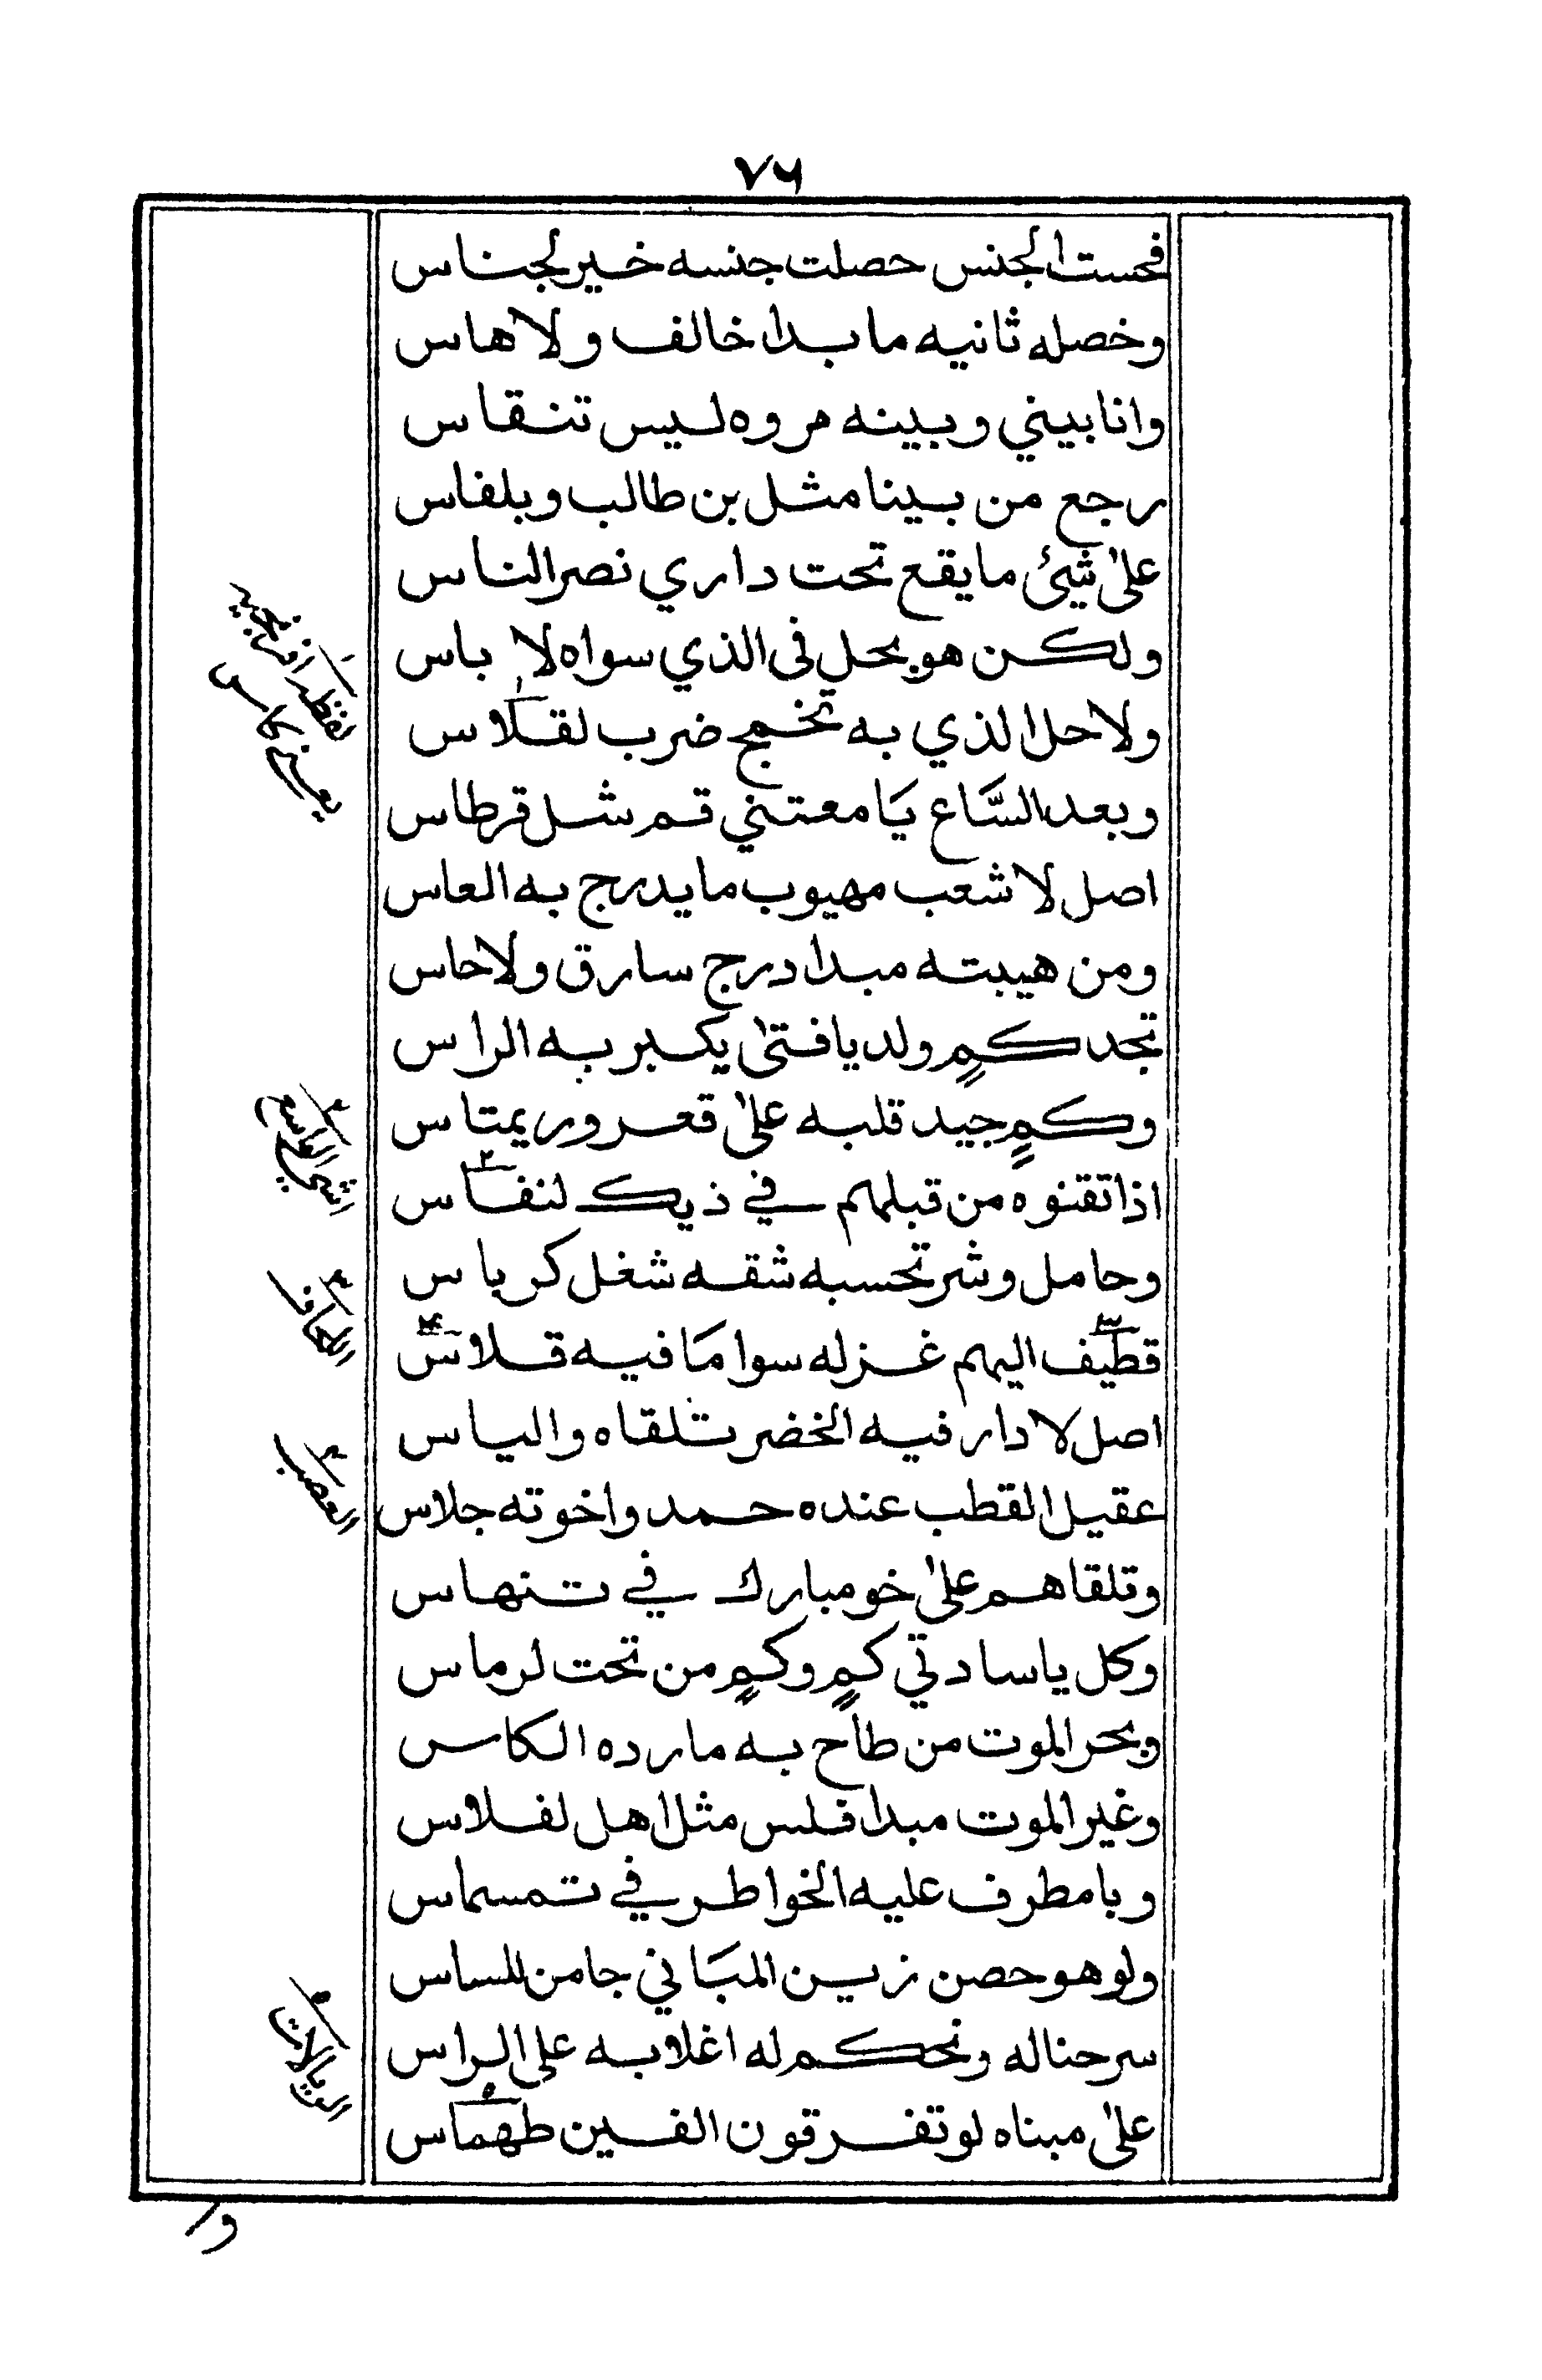 ٧٦
فحست الجنس حصلت جنسه خير لجناس
وخصله ثانيه ما بدا خالف ولا هاس
وانا بيني وبينه مروه ليس تنقاس
رجع من بينا مثل بن طالب وبلفاس
على شيئ ما يقع تحت داري نصر الناس
ولكن هو يحل في الذي سواه لا باس
ولا حل الذي به تخمج ضرب لقلاس
وبعد السَّاع يَا معتني قم شل قرطاس
اصل لا شعب مهيوب ما يدرج به العاس
ومن هيبته مبدا درج سارق ولا حاس
تجد كمٍ ولد يا فتى يكبر به الراس
وكمٍ جيد قلبه على قعر ور يمتاس
اذا تقنوه من قبلهم في ذيك لنفاس
وحامل وشر تحسبه شقه شغل كرباس
قطيف اليهم غزله سوا مَا فيه قلاس
اصل لا دار فيه الخضر تلقاه والياس
عقيل القطب عنده حمد واخوته جلاس
وتلقاهم على خو مبارك في تنهاس
وكل يا سادتي كمٍ وكمٍ من تحت لرماس
وبحر الموت من طاح به ما رده الكاس
وغير الموت مبدا فلس مثل اهل لفلاس
وبا مطرف عليه الخواطر في تمسماس
ولو هو حصن زين المبَاني جا من للساس
سرحنا له ونحكم له اغلابه على الراس
على مبناه لو تفرقون الفين طهماس
لفظة افرنجيه
يعني كاس
٢ الشي الواسع
٣ اللحاف
٤ العصب
٥ الريالات
وا